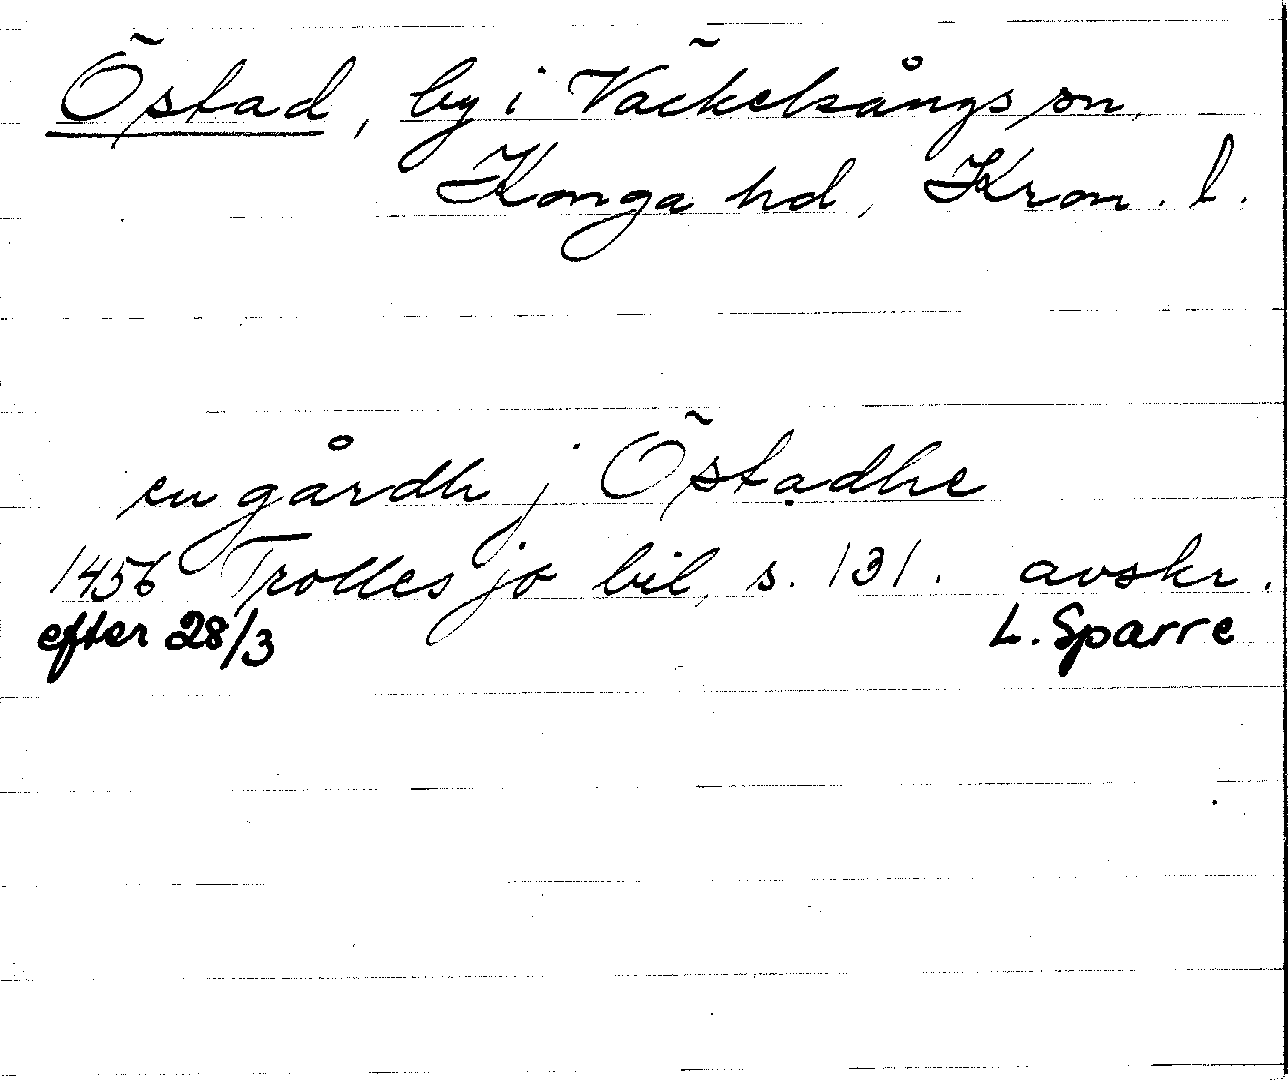 Östad, by i Väckelsångs sn,
Konga hd, Kron. l.
en gårdh j Östadhe
1456 Trolles jo bil, s. 131. avskr.
efter 28/3 L. Sparre